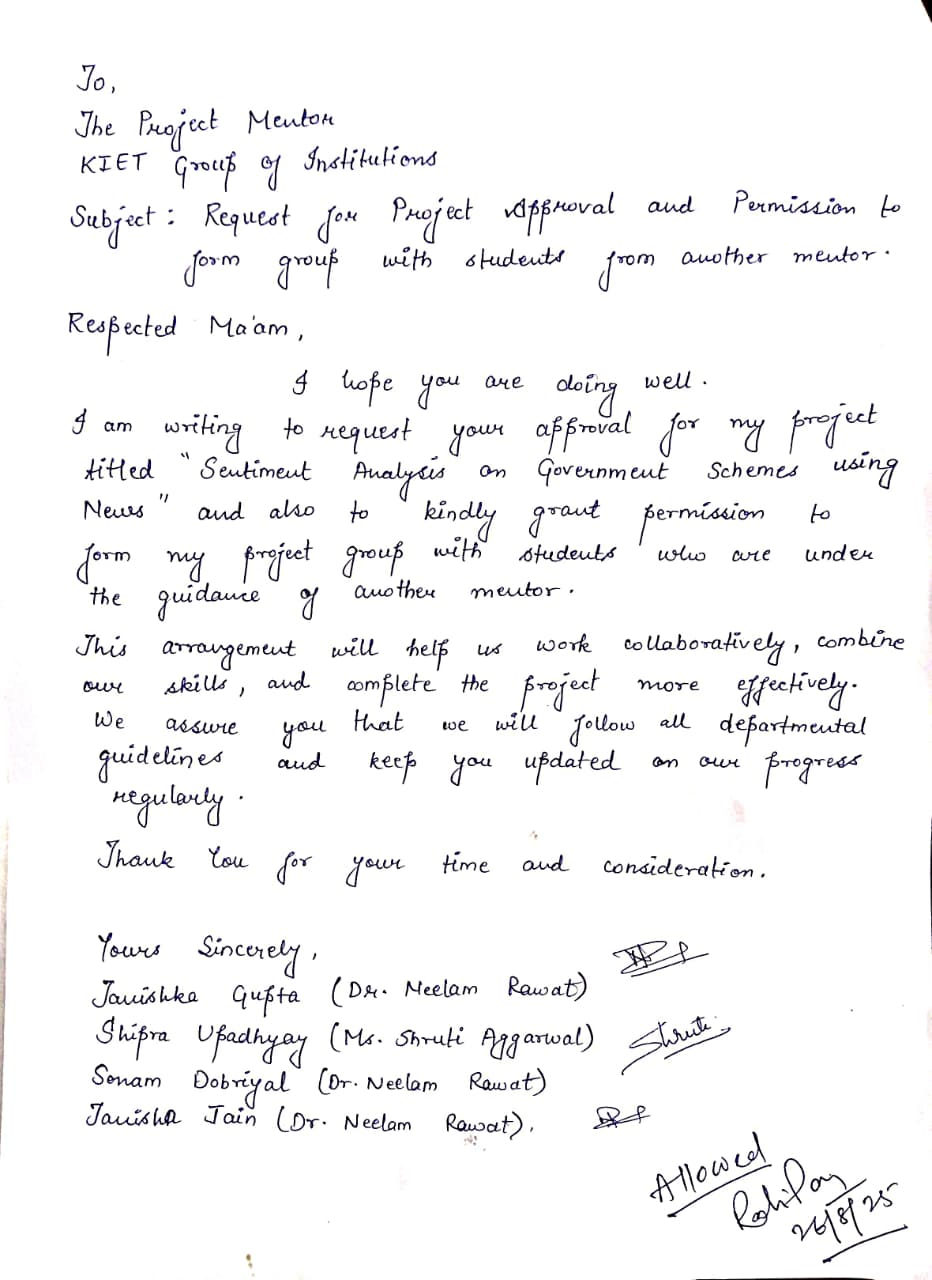 To,
The Project Mentor
KIET Group of Institutions
Subject: Request for Project Approval and Permission to
form group with students from another mentor.
Respected Ma'am,
I hope you are doing well.
I am writing to request your approval for my project
titled "Sentiment Analysis on Government Schemes using
News" and also to kindly grant permission to
form my project group with students who are under
the guidance of another mentor.
This arrangement will help us work collaboratively, combine
our skills, and complete the project more effectively.
We assure you that we will follow all departmental
guidelines and keep you updated on our progress
regularly.
Thank You for your time and consideration.
Yours Sincerely,
Tanishka Gupta (Dr. Neelam Rawat)
Shipra Upadhyay (Ms. Shruti Aggarwal) Shruti
Sonam Dobriyal (Dr. Neelam Rawat)
Tanisha Jain (Dr. Neelam Rawat).
Allowed
26/8/25